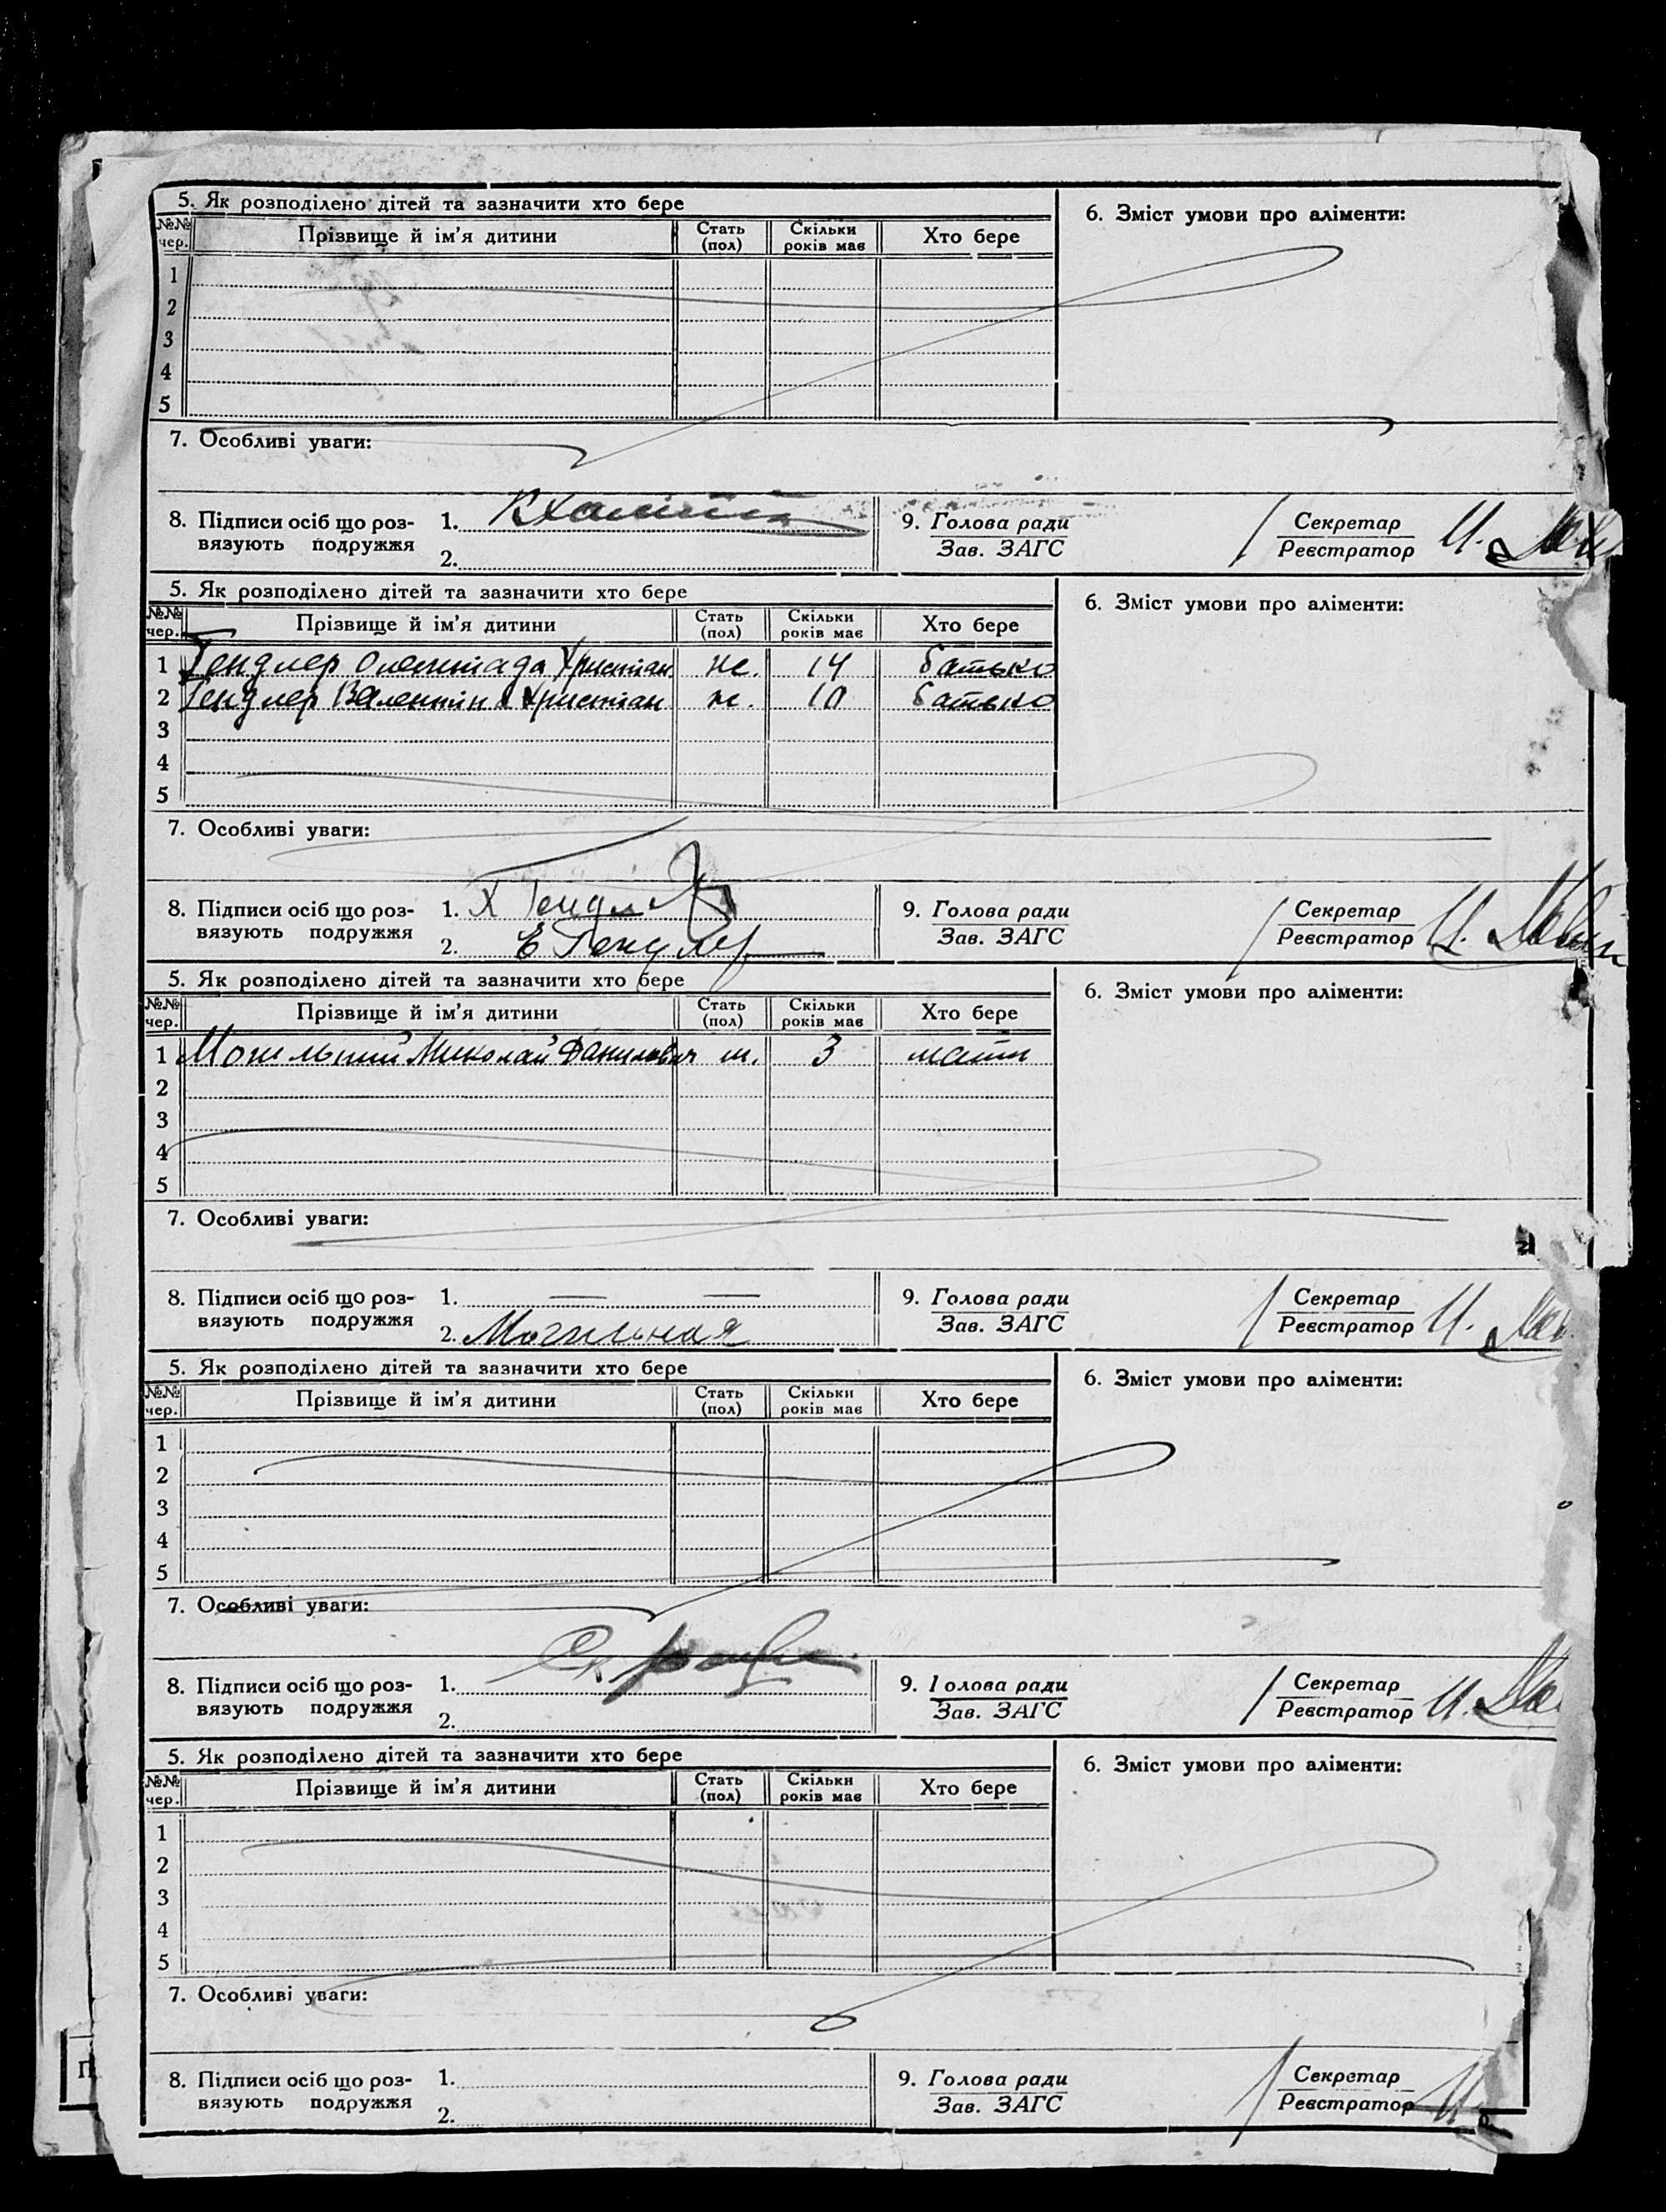 5. Як розподілено дітей та зазначити хто бере
6. Зміст умови про аліменти:
№№ чер. Прізвище й ім'я дитини Стать (пол) Скільки років має Хто бере
1
2
3
4
5
7. Особливі уваги:
8. Підписи осіб що роз-
вязують подружжя
1.
2.
9. Голова ради
Зав. ЗАГС
Секретар
Реєстратор
5. Як розподілено дітей та зазначити хто бере
6. Зміст умови про аліменти:
№№ чер. Прізвище й ім'я дитини Стать (пол) Скільки років має Хто бере
1 Гендлер Христіан. ж. 14 батько
2 Гендлер Валентина Христіан ж. 10 батько
3
4
5
7. Особливі уваги:
8. Підписи осіб що роз-
вязують подружжя
1. Х Гендлер
2. Е Гендлер
9. Голова ради
Зав. ЗАГС
Секретар
Реєстратор
5. Як розподілено дітей та зазначити хто бере
6. Зміст умови про аліменти:
№№ чер. Прізвище й ім'я дитини Стать (пол) Скільки років має Хто бере
1 Могильний Миколай Данилович ч. 3 мати
2
3
4
5
7. Особливі уваги:
8. Підписи осіб що роз-
вязують подружжя
1. — —
2. Могильная
9. Голова ради
Зав. ЗАГС
Секретар
Реєстратор
5. Як розподілено дітей та зазначити хто бере
6. Зміст умови про аліменти:
№№ чер. Прізвище й ім'я дитини Стать (пол) Скільки років має Хто бере
1
2
3
4
5
7. Особливі уваги:
8. Підписи осіб що роз-
вязують подружжя
1.
2.
9. Голова ради
Зав. ЗАГС
Секретар
Реєстратор
5. Як розподілено дітей та зазначити хто бере
6. Зміст умови про аліменти:
№№ чер. Прізвище й ім'я дитини Стать (пол) Скільки років має Хто бере
1
2
3
4
5
7. Особливі уваги:
8. Підписи осіб що роз-
вязують подружжя
1.
2.
9. Голова ради
Зав. ЗАГС
Секретар
Реєстратор